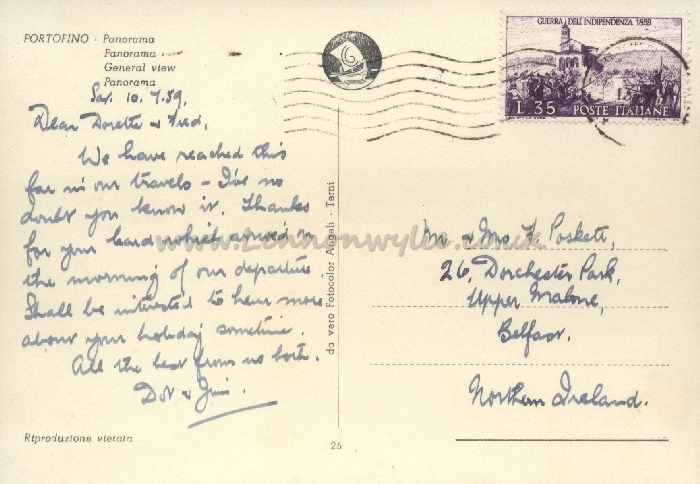 PORTOFINO - Panorama
Panorama
General view
Panorama
Sat. 10.7.59.
Dear Dorette & Fred,
We have reached this
far in our travels – I've no
doubt you know it. Thanks
for your card which arrived on
the morning of our departure.
Shall be interested to hear more
about your holiday sometime.
All the best from us both.
Dot & Jim.
Riproduzione vietata
da vero Fotocolor Angeli - Terni
26
GUERRA DELL'INDIPENDENZA 1859
L. 35 POSTE ITALIANE
Mr & Mrs F. Poskett,
26, Dorchester Park,
Upper Malone,
Belfast.
Northern Ireland.
www.Lennonwylie.co.uk